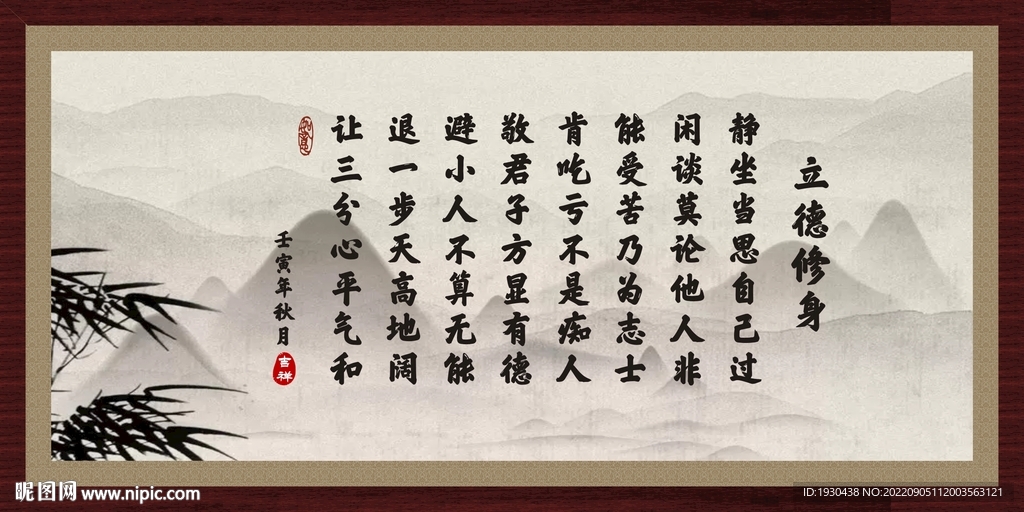 立德修身
静坐当思自己过
闲谈莫论他人非
能受苦乃为志士
肯吃亏不是痴人
敬君子方显有德
避小人不算无能
退一步天高地阔
让三分心平气和
壬寅年秋月
吉祥
昵图网 www.nipic.com
ID:1930438 NO:20220905112003563121